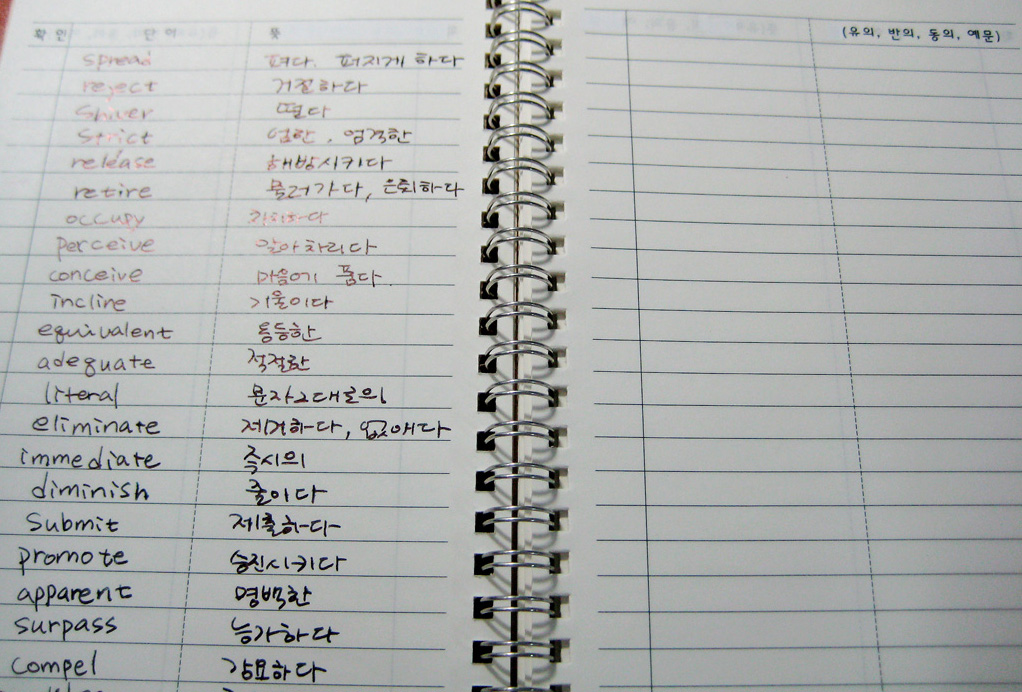 확인 단어 뜻 (유의, 반의, 동의, 예문)
spread 펴다. 퍼지게 하다
reject 거절하다
shiver 떨다
strict 엄한, 엄격한
release 해방시키다
retire 물러가다, 은퇴하다
occupy 차지하다
perceive 알아차리다
conceive 마음에 품다.
incline 기울이다
equivalent 동등한
adequate 적절한
literal 문자그대로의
eliminate 제거하다, 없애다
immediate 즉시의
diminish 줄이다
submit 제출하다
promote 승진시키다
apparent 명백한
surpass 능가하다
compel 강요하다